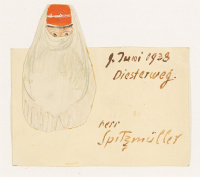 9. Juni 1928
Diesterweg.
Herr
Spitzmüller